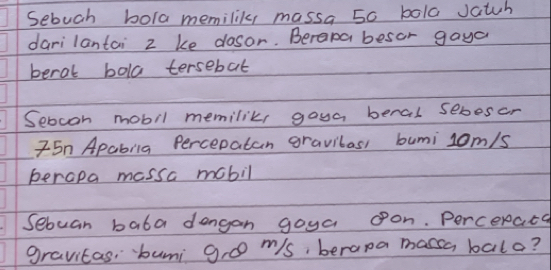 Sebuah bola memiliki massa 50 bola Jatuh
dari lantai 2 ke dasar. Berapa besar gaya
berat bola tersebut
Sebuah mobil memiliki gaya berat sebesar
75n Apabila Percepatan gravitasi bumi 10m/s
berapa massa mobil
Sebuah bata dengan gaya 80n. Percepata
gravitasi bumi 9,8 m/s, berapa massa bata?